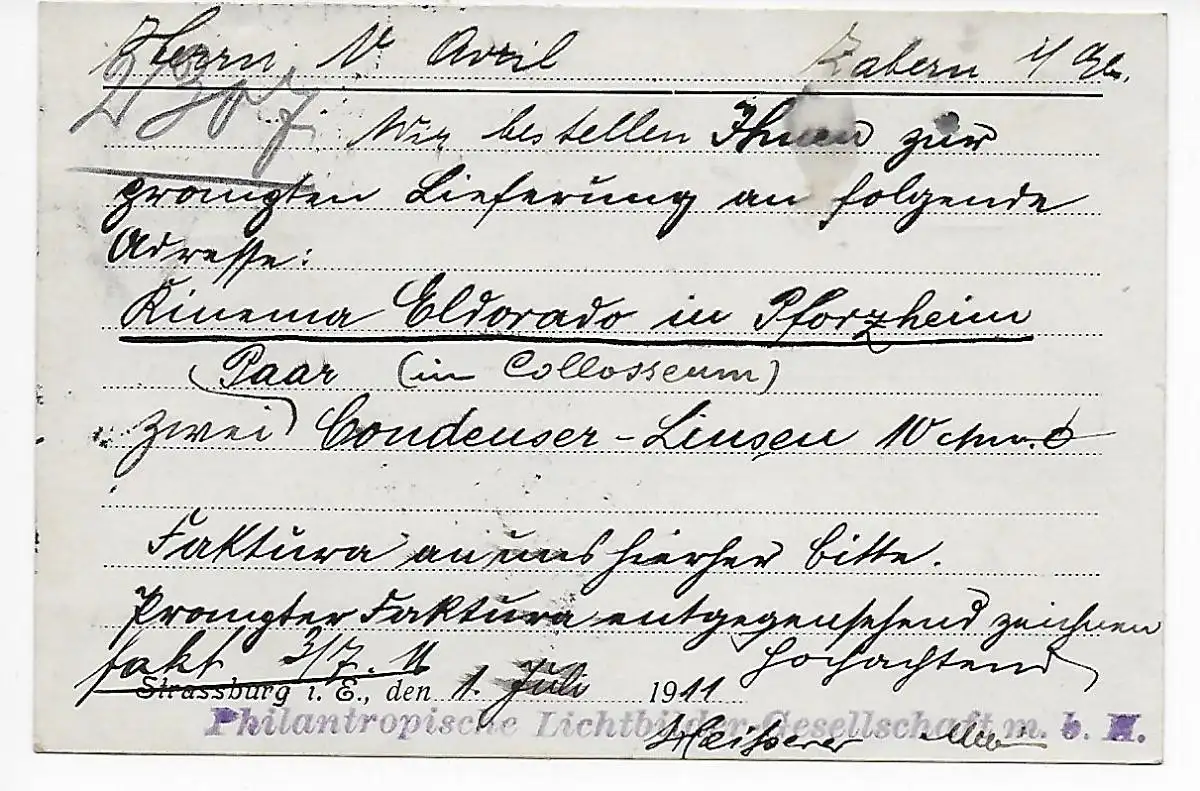 Herrn N. Avril Zabern i/ Els.
2307
Wir bestellen Ihnen zur
prompten Lieferung an folgende
Adresse:
Kinema Eldorado in Pforzheim
Paar (in Collosseum)
zwei Condenser-Linsen 10 ctm. ∅
Faktura an uns hierher bitte.
Prompter Faktura entgegensehend zeichnen
fakt 3/7. 11 hochachtend
Strassburg i. E., den 1. Juli 1911
Philantropische Lichtbilder-Gesellschaft m. b. H.